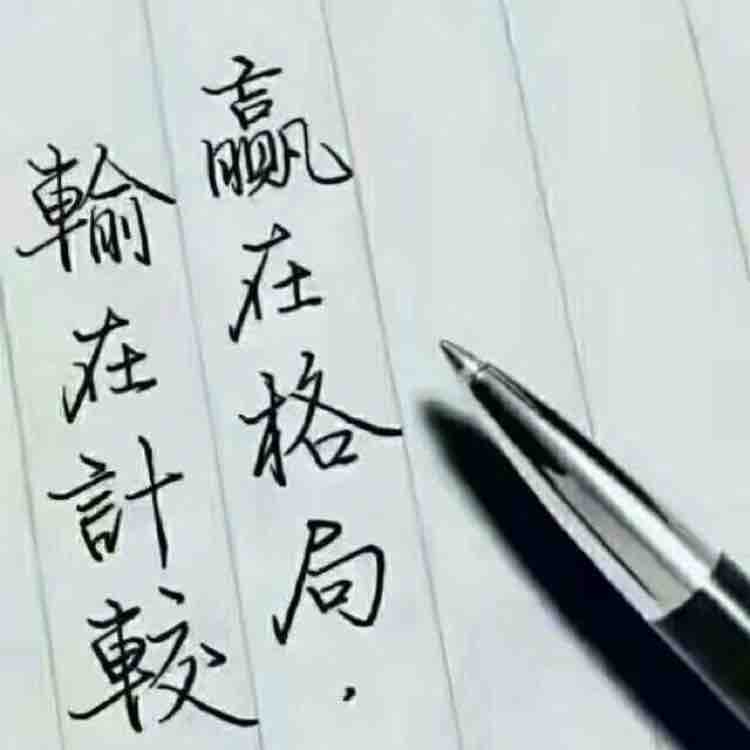 贏在格局.
輸在計較